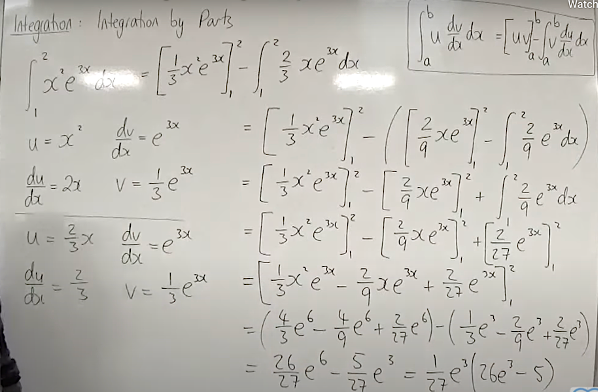 Watch
Integration: Integration by Parts
∫_a^b u dv/dx dx = [uv]_a^b - ∫_a^b v du/dx dx
∫_1^2 x² e^{3x} dx = [1/3 x² e^{3x}]_1^2 - ∫_1^2 2/3 x e^{3x} dx
u = x² dv/dx = e^{3x}
= [1/3 x² e^{3x}]_1^2 - ([2/9 x e^{3x}]_1^2 - ∫_1^2 2/9 e^{3x} dx)
du/dx = 2x v = 1/3 e^{3x}
= [1/3 x² e^{3x}]_1^2 - [2/9 x e^{3x}]_1^2 + ∫_1^2 2/9 e^{3x} dx
u = 2/3 x dv/dx = e^{3x}
= [1/3 x² e^{3x}]_1^2 - [2/9 x e^{3x}]_1^2 + [2/27 e^{3x}]_1^2
du/dx = 2/3 v = 1/3 e^{3x}
= [1/3 x² e^{3x} - 2/9 x e^{3x} + 2/27 e^{3x}]_1^2
= (4/3 e^6 - 4/9 e^6 + 2/27 e^6) - (1/3 e^3 - 2/9 e^3 + 2/27 e^3)
= 26/27 e^6 - 5/27 e^3 = 1/27 e^3 (26e^3 - 5)